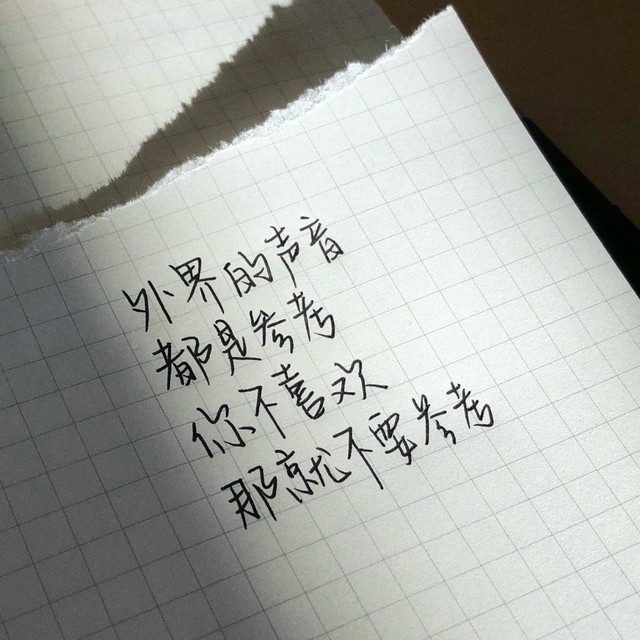 外界的声音
都是参考
你不喜欢
那就不要参考